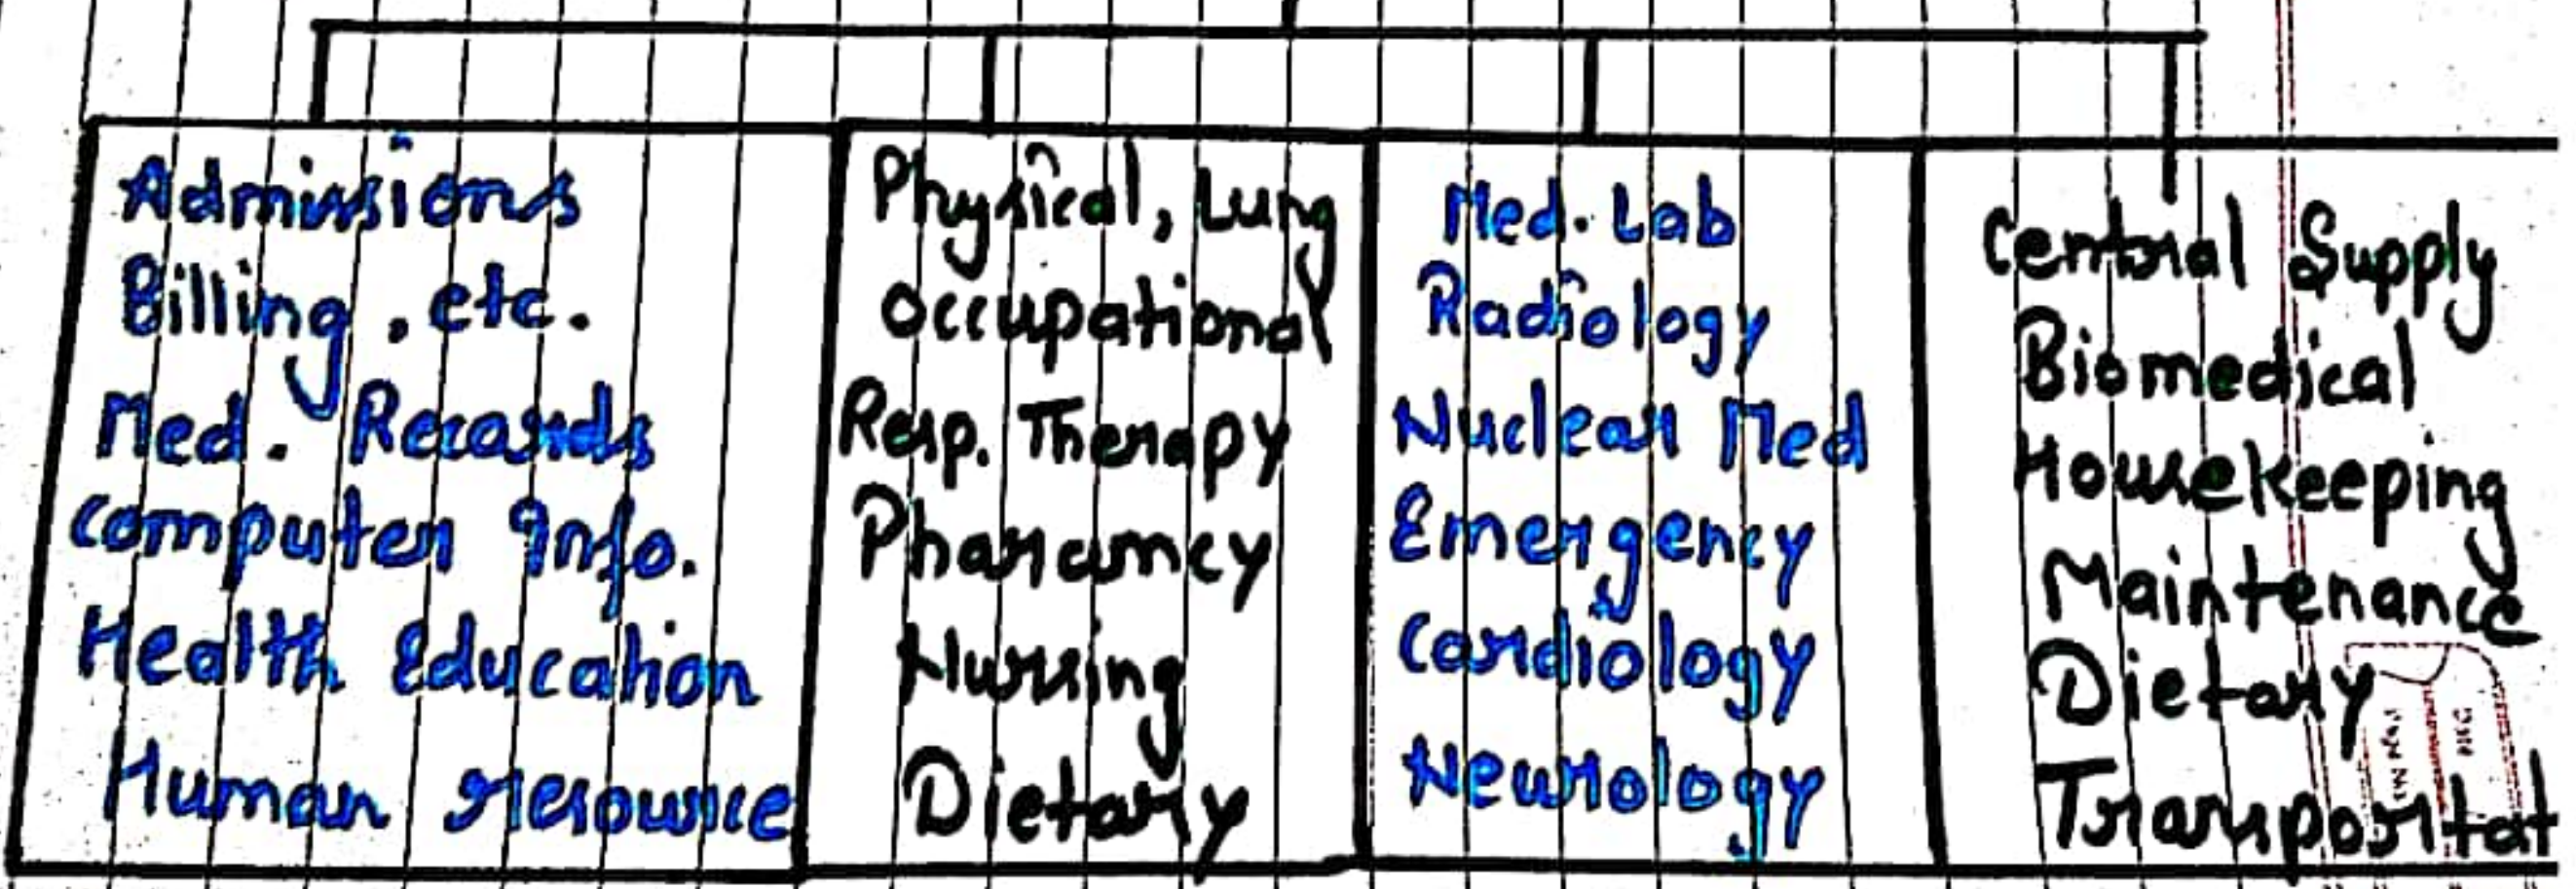 Admissions
Billing, etc.
Med. Records
Computer Info.
Health Education
Human resource
Physical, Lung
Occupational
Resp. Therapy
Pharamcy
Nursing
Dietary
Med. Lab
Radiology
Nuclear Med
Emergency
Cardiology
Neurology
Central Supply
Biomedical
Housekeeping
Maintenance
Dietary
Transportat